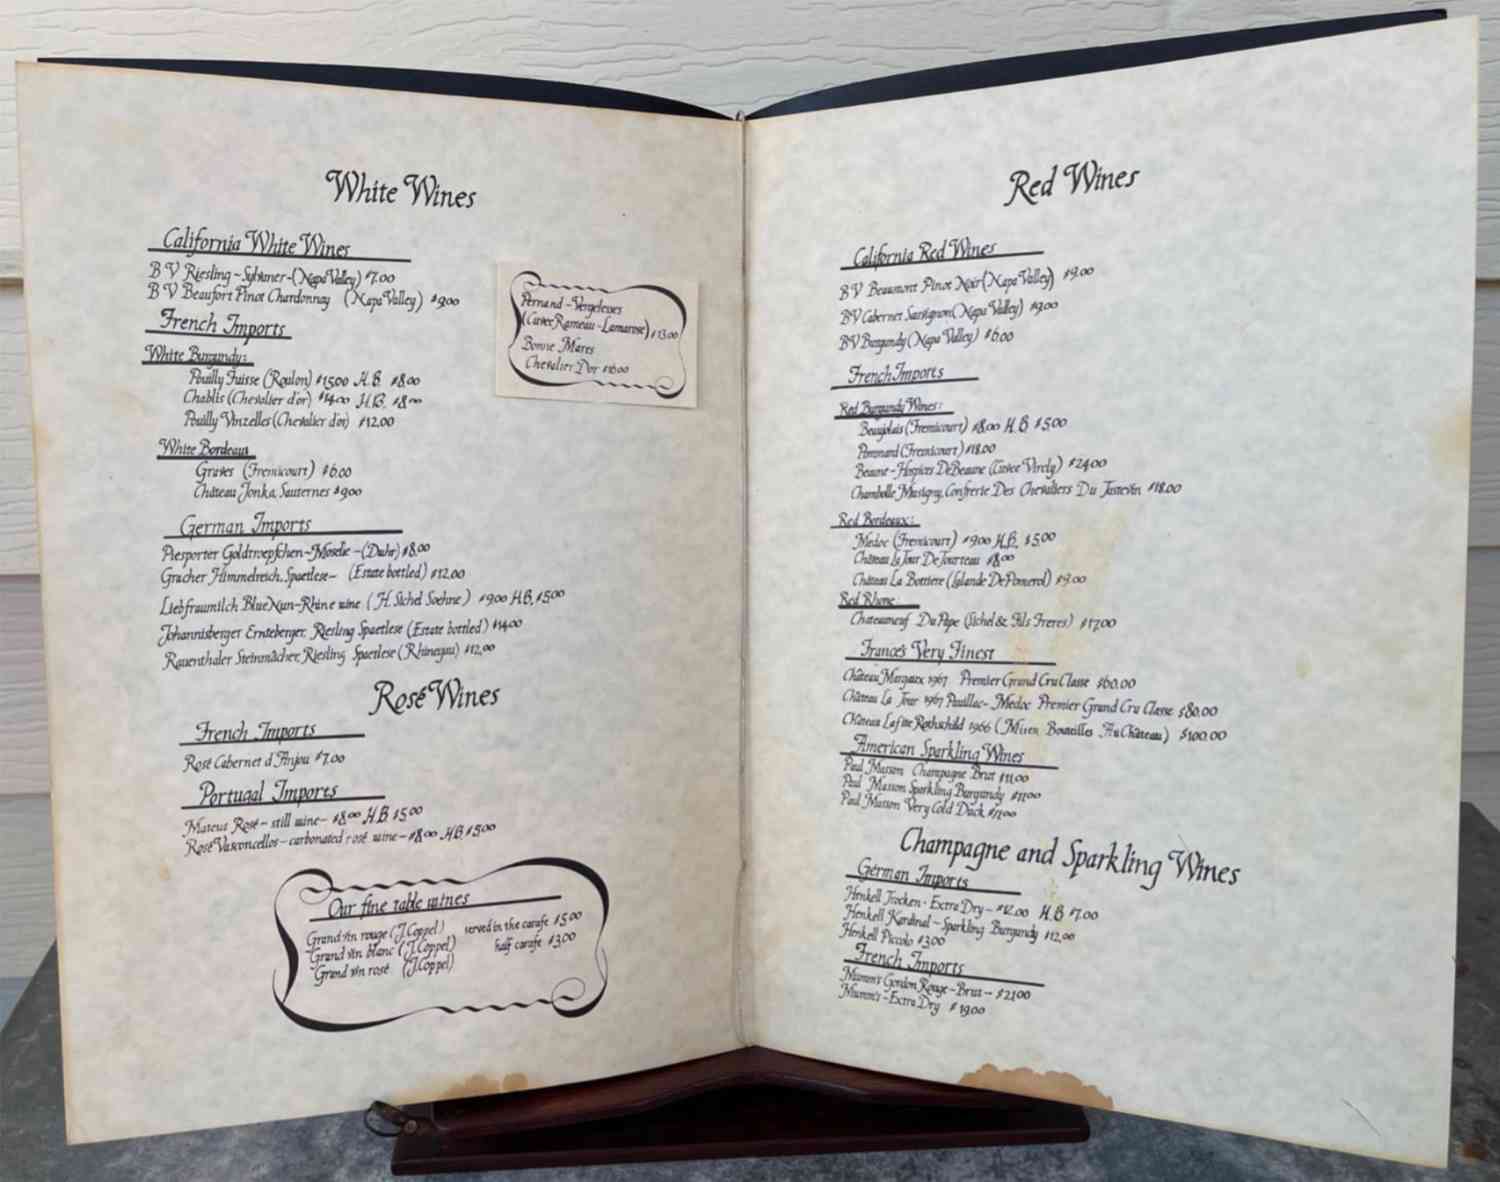 White Wines
California White Wines
B V Riesling ~ Sylvaner ~ (Napa Valley) $7.00
B V Beaufort Pinot Chardonnay (Napa Valley) $9.00
French Imports
White Burgundy:
Pouilly Fuisse (Roulon) $15.00 H.B. $8.00
Chablis (Chevalier d'or) $14.00 H.B. $8.00
Pouilly Vinzelles (Chevalier d'or) $12.00
White Bordeaux
Graves (Fremicourt) $6.00
Château Jonka, Sauternes $9.00
German Imports
Piesporter Goldtroepfchen ~ Moselle ~ (Duhr) $8.00
Gracher Himmelreich, Spaetlese ~ (Estate bottled) $12.00
Liebfraumilch Blue Nun ~ Rhine wine (H. Sichel Soehne) $9.00 H.B. $5.00
Johannisberger Ernteberger, Riesling Spaetlese (Estate bottled) $14.00
Rauenthaler Steinmächer, Riesling Spaetlese (Rhinegau) $12.00
Rosé Wines
French Imports
Rosé Cabernet d'Anjou $7.00
Portugal Imports
Mateus Rosé ~ still wine ~ $8.00 H.B $5.00
Rosé Vasconcellos ~ carbonated rosé wine ~ $8.00 H.B $5.00
Our fine table wines
Grand vin rouge (J. Coppel) served in the carafe $5.00
Grand vin blanc (J. Coppel) half carafe $3.00
Grand vin rosé (J. Coppel)
Pernand ~ Vergelesses
(Cuvee, Rameau ~ Lamarosse) $13.00
Bonne Mares
Chevalier D'or $16.00
Red Wines
California Red Wines
B V Beaumont Pinot Noir (Napa Valley) $9.00
B V Cabernet Sauvignon (Napa Valley) $9.00
B V Burgundy (Napa Valley) $6.00
French Imports
Red Burgundy Wines:
Beaujolais (Fremicourt) $8.00 H.B $5.00
Pommard (Fremicourt) $18.00
Beaune ~ Hospices De Beaune (Cuvee Virely) $24.00
Chambolle Musigny, Confrerie Des Chevaliers Du Tastevin $18.00
Red Bordeaux:
Medoc (Fremicourt) $9.00 H.B. $5.00
Château la Tour De Tourteau $8.00
Château La Bottiere (Lalande De Pomerol) $9.00
Red Rhone:
Chateauneuf Du Pape (Sichel & Fils Freres) $17.00
France's Very Finest
Château Margaux 1967 Premier Grand Cru Classe $60.00
Château La Tour 1967 Pauillac ~ Medoc Premier Grand Cru Classe $80.00
Château Lafite Rothschild 1966 (Misen Bouteilles Au Château) $100.00
American Sparkling Wines
Paul Masson Champagne Brut $11.00
Paul Masson Sparkling Burgundy $11.00
Paul Masson Very Cold Duck $11.00
Champagne and Sparkling Wines
German Imports
Henkell Trocken ~ Extra Dry ~ $12.00 H.B $7.00
Henkell Kardinal ~ Sparkling Burgundy $12.00
Henkell Piccolo $3.00
French Imports
Mumm's Gordon Rouge ~ Brut ~ $21.00
Mumm's ~ Extra Dry $19.00